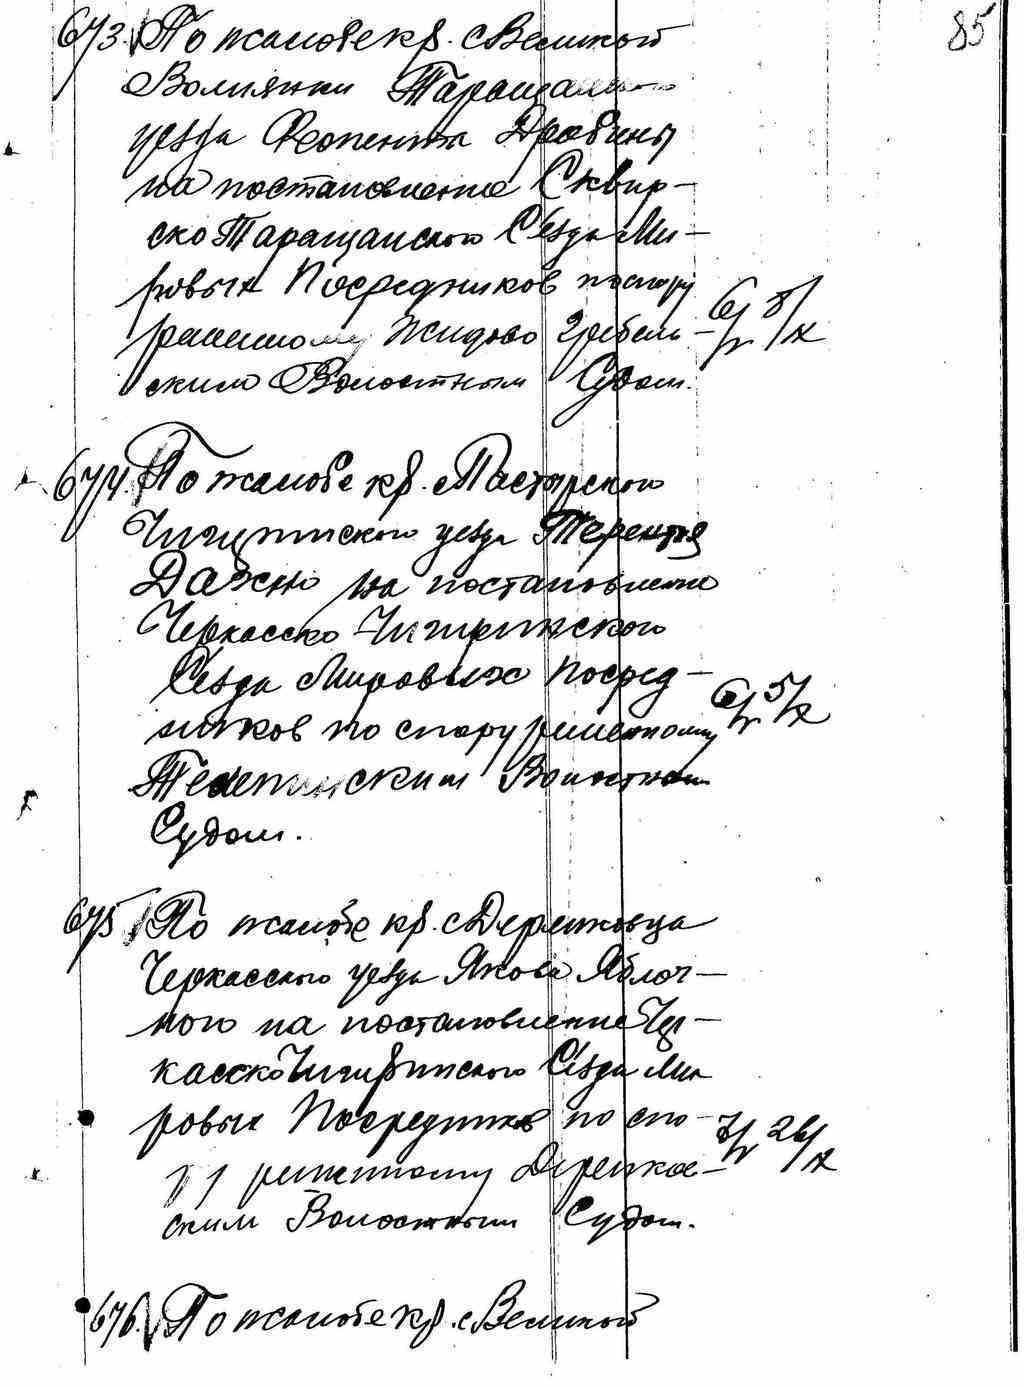 85
673. По жалобе кр. с Великой
Вольянки Таращанского
уезда Дробины
на постановление Сквир-
ско Таращанского Съезда Ми-
ровых Посредников по спору
решенному Жидово Гребель-
ским Волостным Судом.
6/V 8/X
674. По жалобе кр. с Пастырского
Чигиринского уезда Терентия
Дахно на постановление
Черкасско-Чигиринского
Съезда Мировых Посред-
ников по спору решенному
6/V 5/X
Телепинским Волостным
Судом.
675 По жалобе кр. с Деренковца
Черкасского уезда Якова Яблоч-
ного на постановление Чер-
касско Чигиринского Съезда Ми
ровых Посредников по спо-
ру решенному Деренков-
7/V 26/X
ским Волостным Судом.
676. По жалобе кр. с Великой